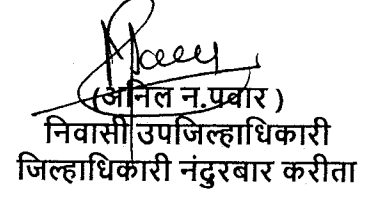 (अनिल न.पवार )
निवासी उपजिल्हाधिकारी
जिल्हाधिकारी नंदुरबार करीता